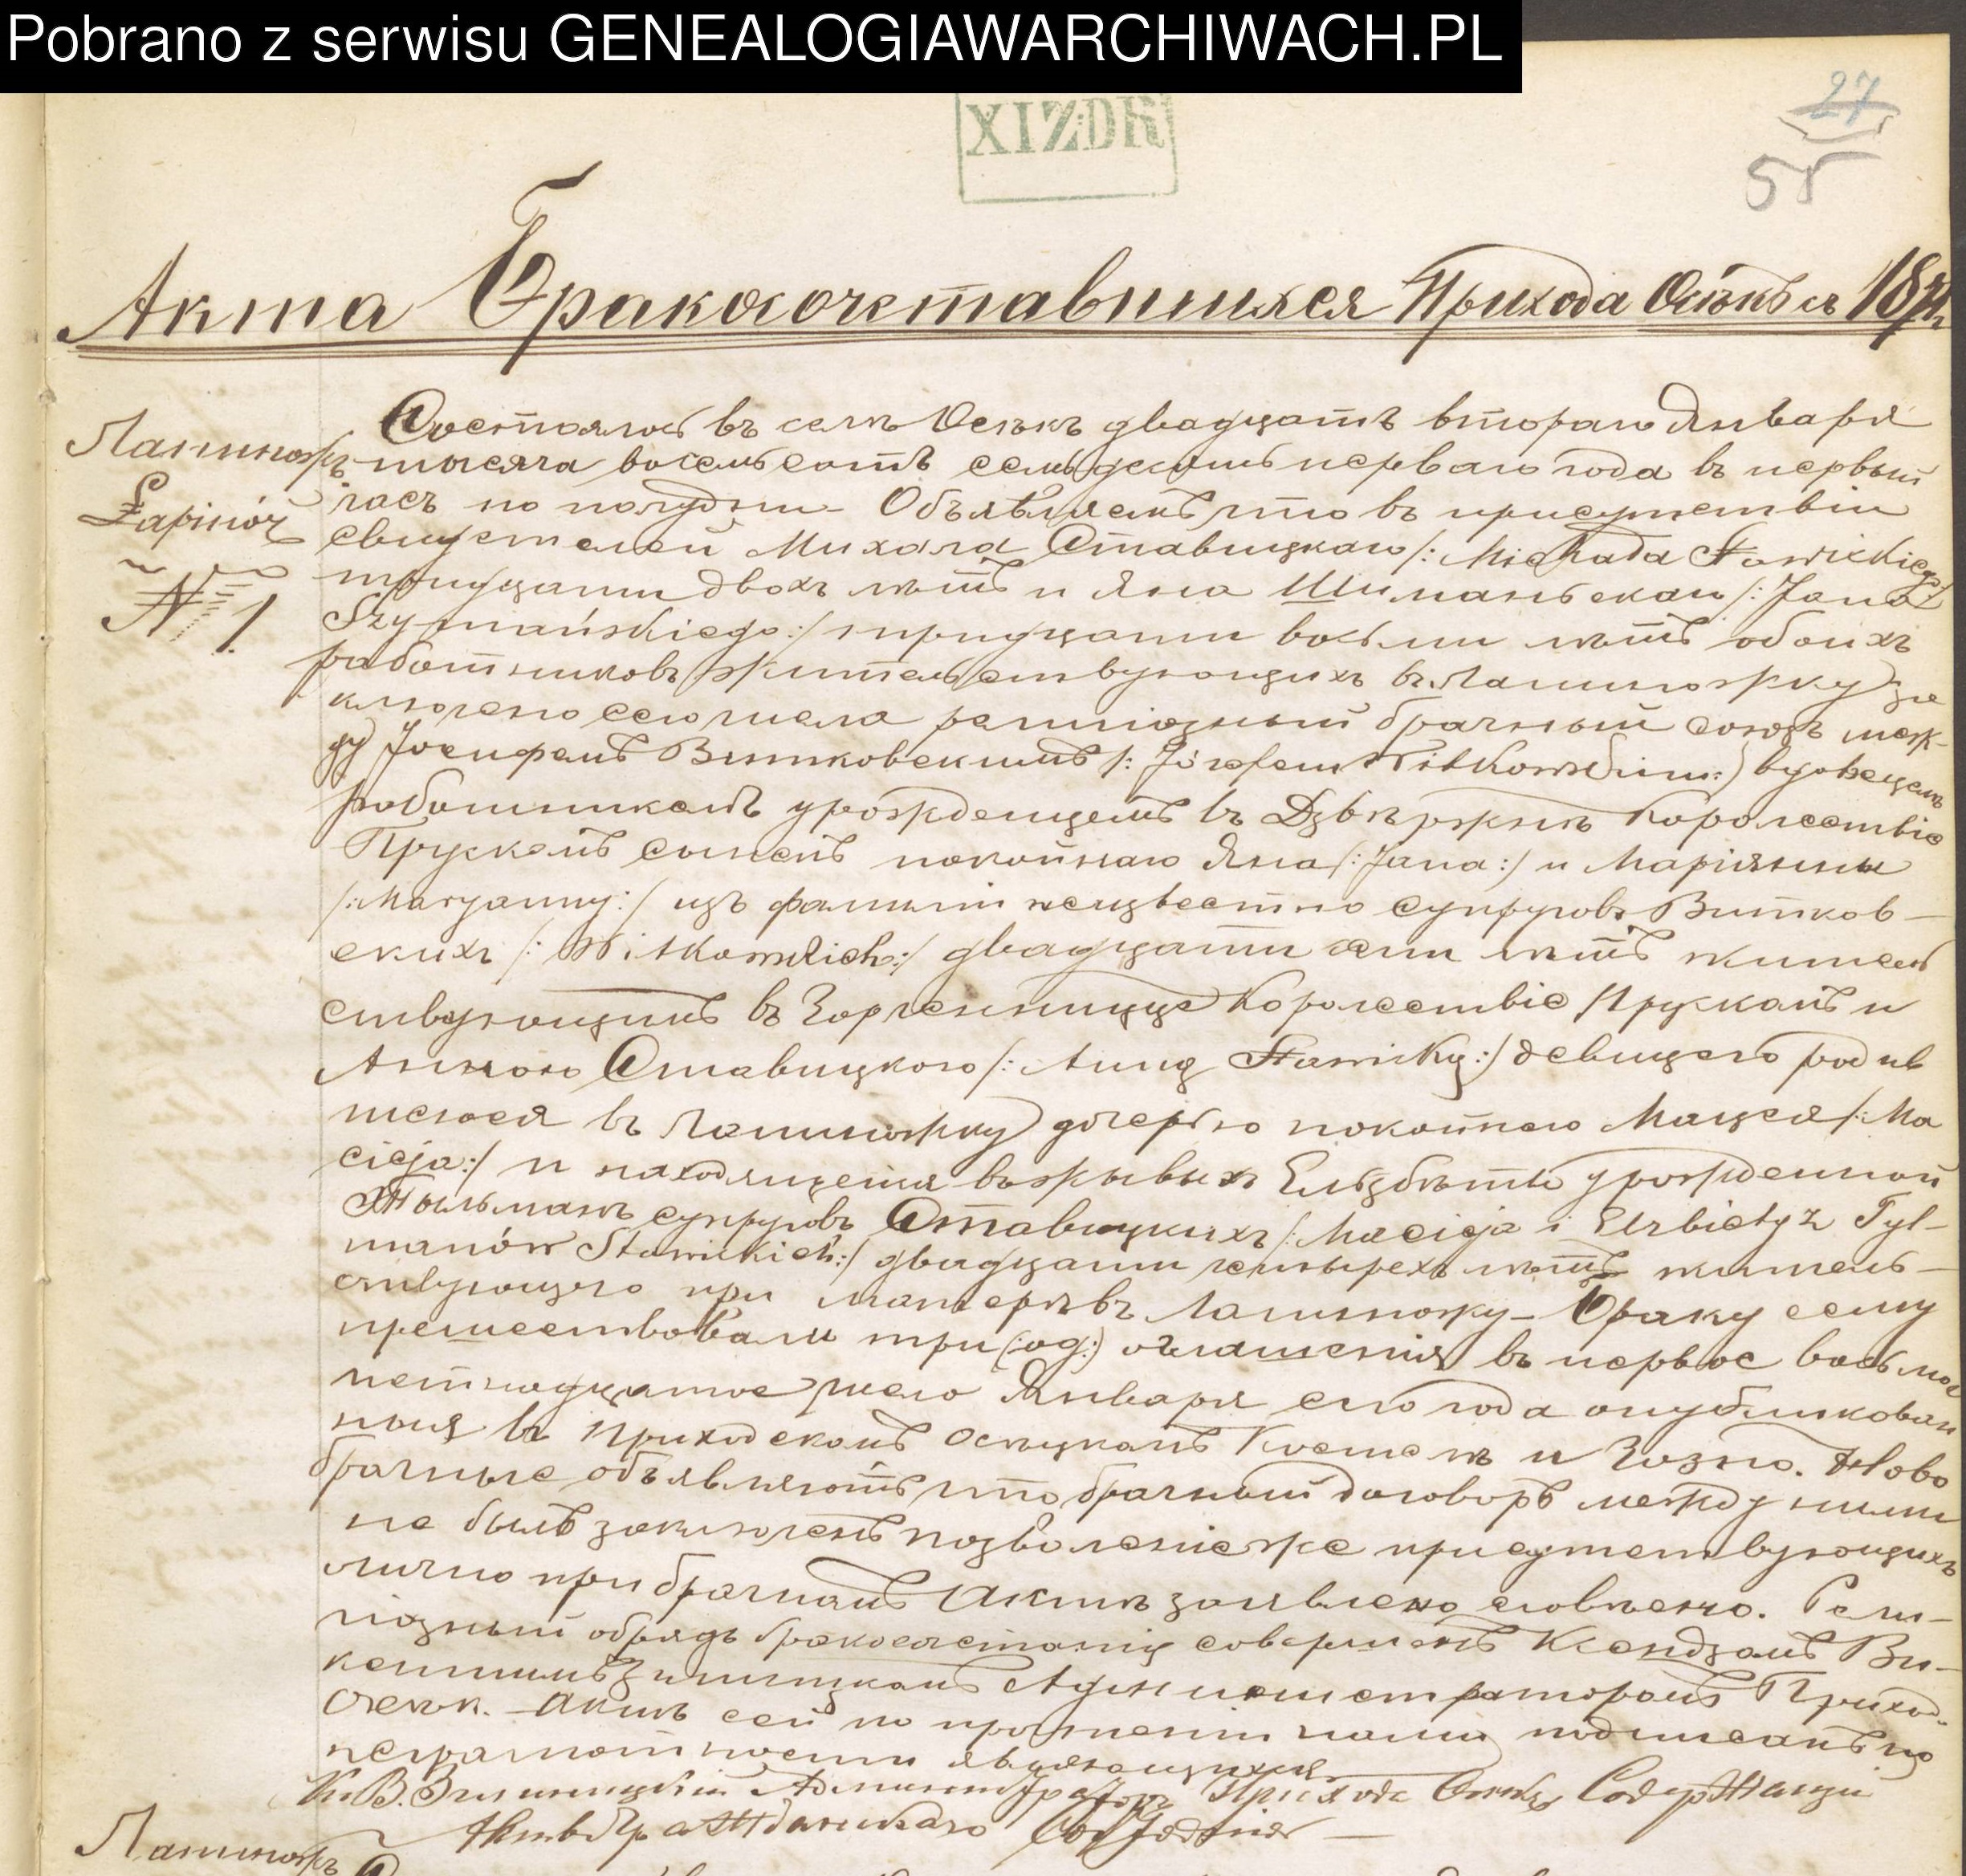 Pobrano z serwisu GENEALOGIAWARCHIWACH.PL
XI Z:DR
27
55
Акта Бракосочетавшихся Прихода Осѣкъ съ
Лапинож.
Łapinóż
№ 1
Состоялось въ селѣ Осѣкъ двадцать втораго Января
тысяча восемьсотъ семьдесятъ перваго года въ первый
часъ по полудни – Объявляемъ что въ присутствіи
свидетелей Михала Ставицкаго /: Michała Stawickiego :/
тридцати двохъ лѣтъ и Яна Шиманьскаго /: Jana
Szymańskiego :/ тридцати восьми лѣтъ обоихъ
работниковъ жительствующихъ въ Лапиножку за
ключено сего числа религіозный брачный союзъ меж-
ду Іосифемъ Витковскимъ /: Józefem Witkowskim :/ вдовцемъ
работникемъ урожденцемъ въ Дзвѣржнѣ Королествіе
Прускемъ сынемъ покойнаго Яна /: Jana :/ и Маріянны
/: Maryanny :/ изъ фамиліи неизвестно супруговъ Витков-
скихъ /: Witkowskich :/ двадцати сѣми лѣтъ житель
ствующимъ въ Королествіе Прускемъ и
Анною Ставицкою /: Anną Stawicką :/ девицею родив
шеюся въ Лапиножку дочерью покойнаго Мацея /: Ma
cieja :/ и находящейся въ живыхъ Ельзбѣты урожденной
Тыльманъ супруговъ Ставицкихъ /: Macieja i Elzbiety z Tyl-
manów Stawickich :/ двадцати четырехъ лѣтъ житель-
ствующего при матерѣ въ Лапиножку – Браку сему
прешествовали три оглашенія въ первое восьмое
петнадцатое число Января сего года опубликован
ныя въ Приходскомъ Осецкомъ Костелѣ и Ново
брачные объявляютъ что брачный договоръ между ними
не былъ заключенъ позволеніе же присутствующихъ
лично при брачномъ Актѣ заявлено словѣсно. Рели-
гіозный обрядъ бракосочетанія совершенъ Ксендземъ Ви-
кентимъ Администраторомъ Приход.
Осекъ. – Актъ сей по прочтеніи нами подписанъ по
неграмотности являющихся.
Кс. В. Администраторъ Прихода Осѣкъ Содержащій
Акты Гражданскаго Состоянія –
Лапинож.